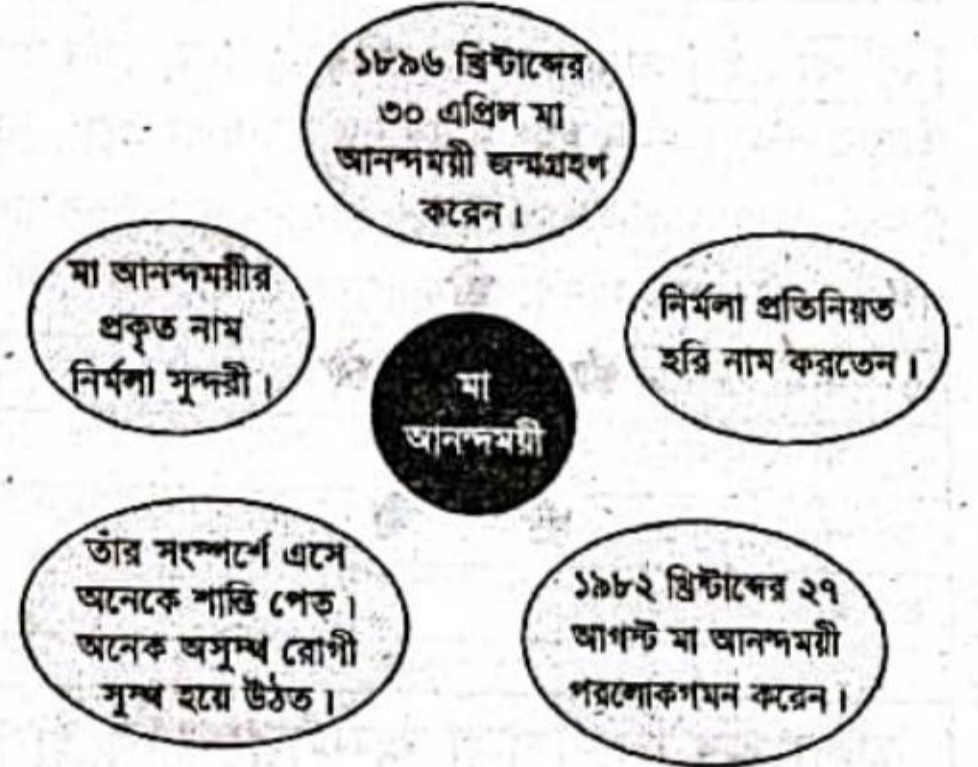 ১৮৯৬ খ্রিস্টাব্দের
৩০ এপ্রিল মা
আনন্দময়ী জন্মগ্রহণ
করেন।
মা আনন্দময়ীর
প্রকৃত নাম
নির্মলা সুন্দরী।
নির্মলা প্রতিনিয়ত
হরি নাম করতেন।
মা
আনন্দময়ী
তাঁর সংস্পর্শে এসে
অনেকে শান্তি পেত।
অনেক অসুস্থ রোগী
সুস্থ হয়ে উঠত।
১৯৮২ খ্রিস্টাব্দের ২৭
আগস্ট মা আনন্দময়ী
পরলোকগমন করেন।